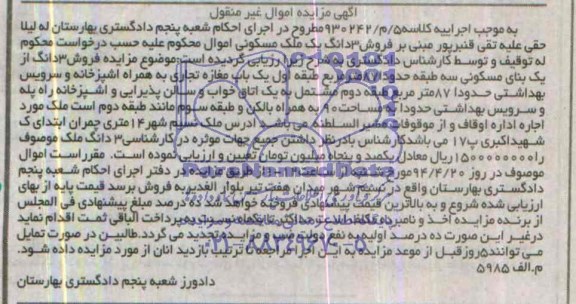 آگهی مزایده اموال غیر منقول
به موجب اجراییه کلاسه۹۳۰۲۴۲/م/۵مطروح در اجرای احکام شعبه پنجم دادگستری بهارستان له لیلا
حقی علیه تقی قنبرپور مبنی بر فروش۳دانگ یک ملک مسکونی اموال محکوم علیه حسب درخواست محکوم
له توقیف و توسط کارشناس دادگستری به شرح ارزیابی گردیده است موضوع مزایده فروش۳دانگ از
یک بنای مسکونی سه طبقه حدودا ۸۷متر مربع طبقه اول یک باب مغازه تجاری به همراه اشپزخانه و سرویس
بهداشتی حدودا ۸۷متر مربع طبقه دوم مشتمل به یک اتاق خواب و سالن پذیرایی و اشپزخانه راه پله
و سرویس بهداشتی حدودا به مساحت۹۰ به همراه بالکن و طبقه سوم مانند طبقه دوم است ملک مورد
اجاره اداره اوقاف و از موقوفات مشیر السلطنه می باشد ادرس ملک نسیم شهر۱۴متری چمران ابتدای ک
شهیداکبری پ۱۷ می باشدکارشناس بادرنظر داشتن جمیع جهات موثره در کارشناسی۳ دانگ ملک موصوف
را۱۵۰۰۰۰۰۰۰۰ریال معادل یکصد و پنجاه میلیون تومان تعیین و ارزیابی نموده است. مقرر است اموال
موصوف در روز ۹۴/۴/۲۰ در دفتر اجرای احکام شعبه پنجم
دادگستری بهارستان واقع در نسیم شهر میدان هفت تیر بلوار الغدیر به فروش برسد قیمت پایه از بهای
ارزیابی شده شروع و به بالاترین قیمت پیشنهادی فروخته خواهد شد ده درصد مبلغ پیشنهادی فی المجلس
از برنده مزایده اخذ و نامبرده مکلف است حداکثر تا یکماه نسبت به پرداخت الباقی ثمن اقدام نماید
درغیر این صورت ده درصد اولیه به نفع دولت ضبط و مزایده تجدید می گردد.طالبین در صورت تمایل
می توانند۵روز قبل از موعد مزایده به این اجرا مراجعه تا ترتیب بازدید انان از مورد مزایده داده شود.
م.الف ۵۹۸۵
دادورز شعبه پنجم دادگستری بهارستان